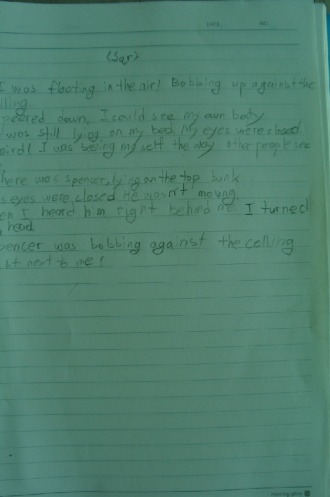 DATE NO.
(Sar)
I was floating in the air! Bobbing up against the
iling.
peered down, I could see my own body
was still lying on my back, My eyes were closed.
eird! I was being my self the way other people see
here was spencer, lying on the top bunk
s eyes were closed He wasn't moving.
en I heard him right behind me I turned
head.
pencer was bobbing against the celling
st next to me!